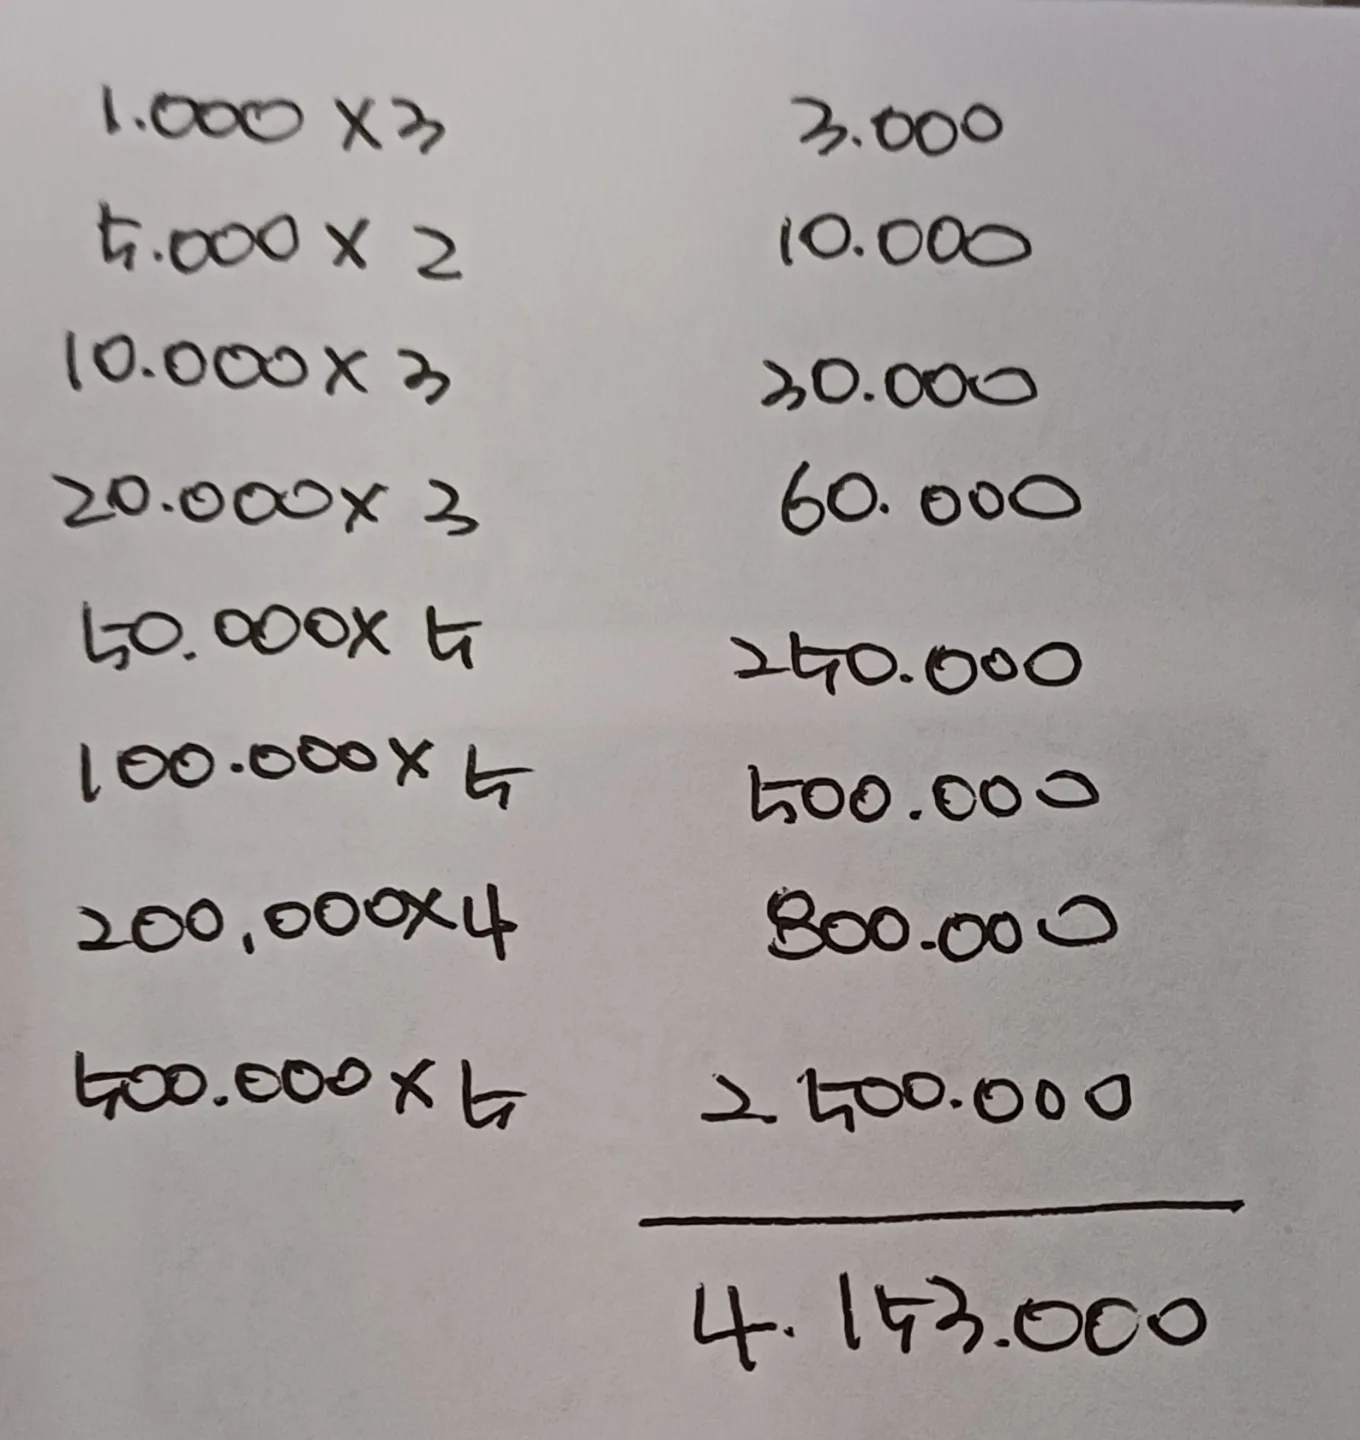 1.000 x 3 3.000
5.000 x 2 10.000
10.000 x 3 30.000
20.000 x 3 60.000
50.000 x 5 250.000
100.000 x 5 500.000
200,000 x 4 800.000
500.000 x 5 2.500.000
4.153.000